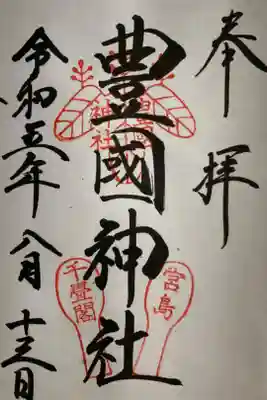 奉拝
豊國神社
令和五年八月十三日
神社
千畳閣
宮島